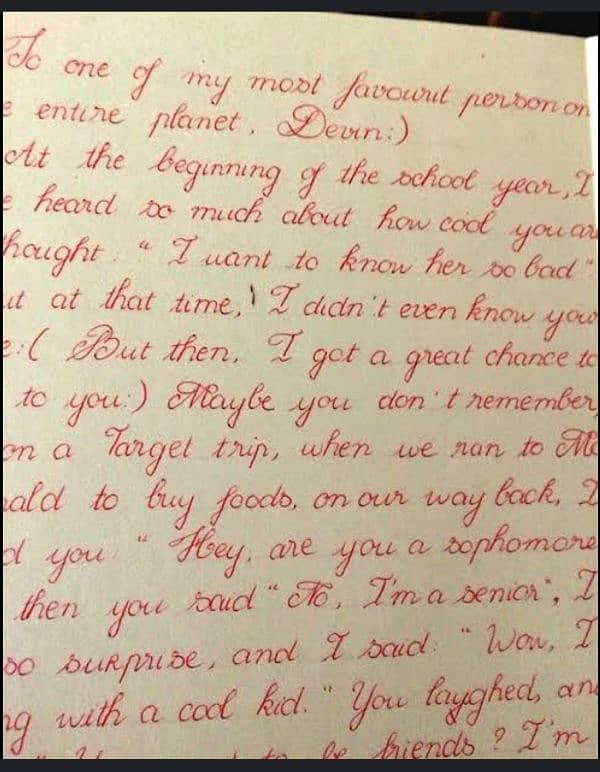 To one of my most favourit person on
e entire planet, Devin:)
At the beginning of the school year, I
e heard so much about how cool you are
hought : "I want to know her so bad"
ut at that time, I didn't even know your
e:( But then, I got a great chance to
to you:) Maybe you don't remember,
on a Target trip, when we ran to Mc
nald to buy foods, on our way back, I
d you : "Hey, are you a sophomore
then you said "No, I'm a senior", I
so surprise, and I said: "Wow, I
ng with a cool kid." You layghed, and
to be friends? I'm